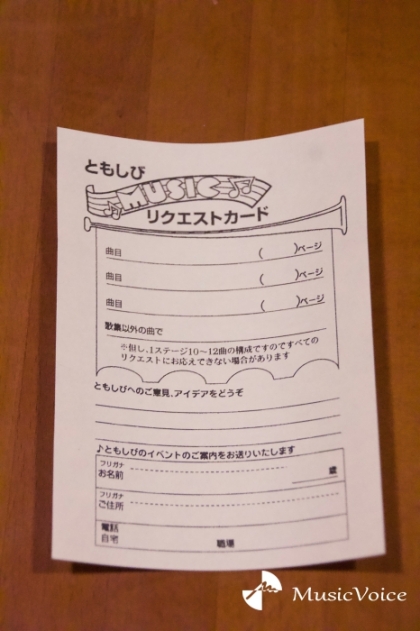 ともしび
MUSIC
リクエストカード
曲目 ( )ページ
曲目 ( )ページ
曲目 ( )ページ
歌集以外の曲で
※但し、1ステージ10〜12曲の構成ですのですべての
リクエストにお応えできない場合があります
ともしびへのご意見、アイデアをどうぞ
♪ともしびのイベントのご案内をお送りいたします
フリガナ
お名前 歳
フリガナ
ご住所
電話
自宅 職場
MusicVoice